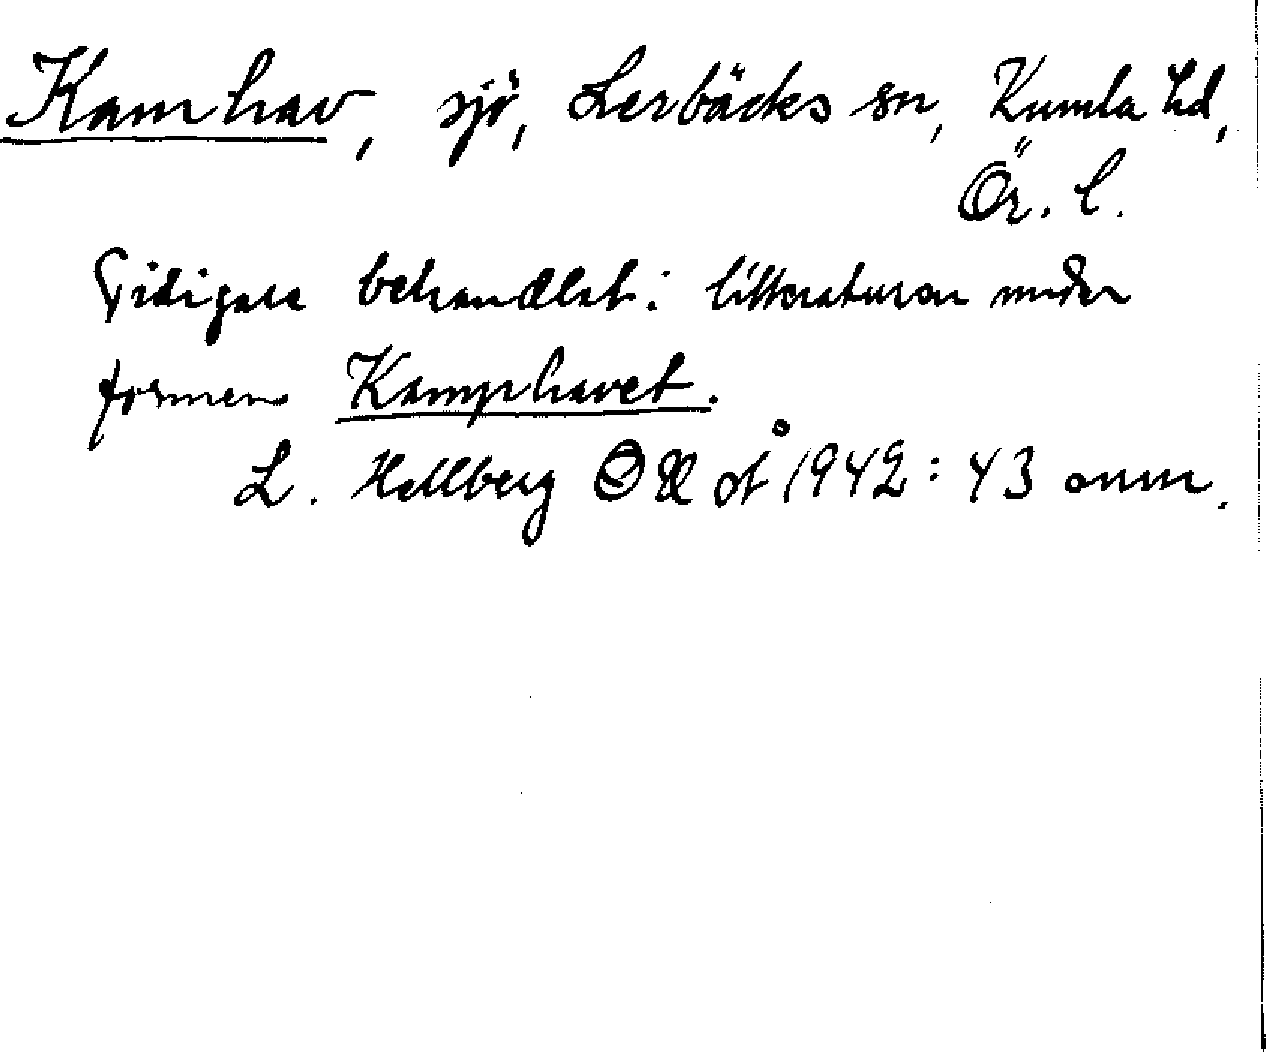 Kamhav, sjö, Lerbäcks sn, Kumla hd,
Ör. l.
Tidigare behandlat i litteraturen under
formen Kamphavet.
L. Hellberg OÄ 1942: 43 onm.